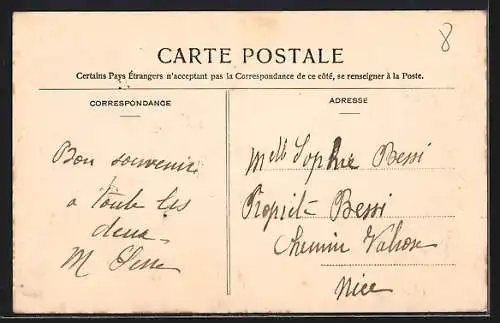 8
CARTE POSTALE
Certains Pays Étrangers n'acceptant pas la Correspondance de ce côté, se renseigner à la Poste.
CORRESPONDANCE
Bon souvenir
a toute les
deux
M
ADRESSE
Melle Sophie Bessi
Propriét Bessi
Chemin Valrose
Nice